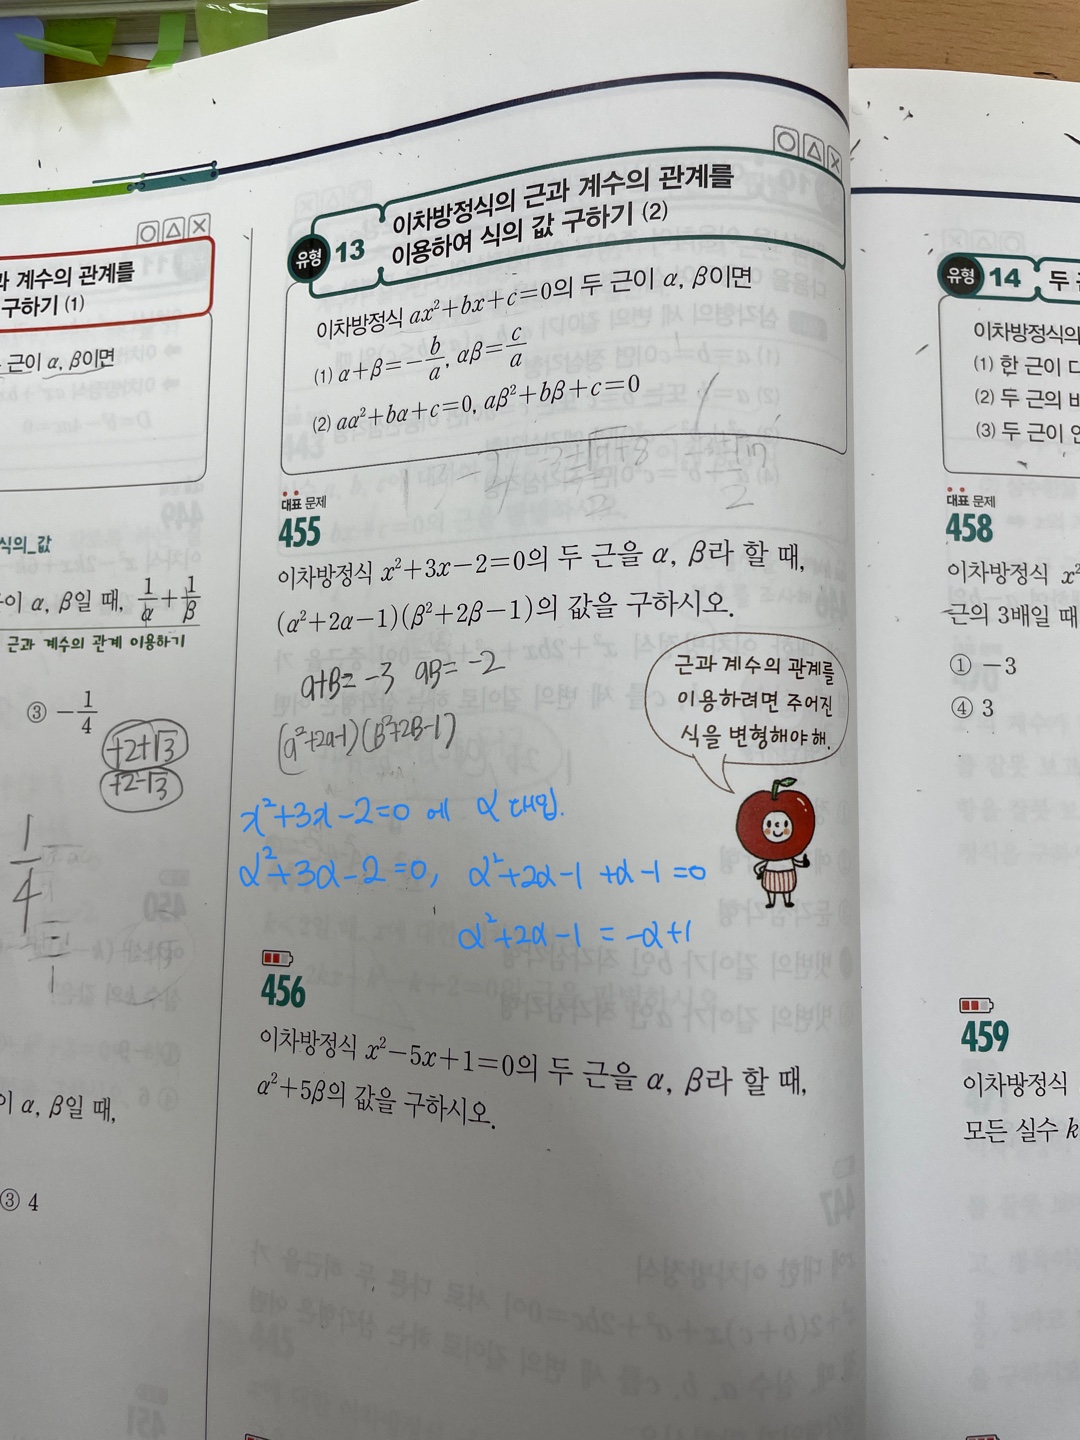 과 계수의 관계를
구하기 (1)
근이 α, β이면
식의_값
이 α, β일 때, 1/α+1/β
근과 계수의 관계 이용하기
③ -1/4
+2+√3
+2-√3
1/4
이 α, β일 때,
③ 4
유형 13 이차방정식의 근과 계수의 관계를
이용하여 식의 값 구하기 (2)
이차방정식 ax²+bx+c=0의 두 근이 α, β이면
(1) α+β=-b/a, αβ=c/a
(2) aα²+bα+c=0, aβ²+bβ+c=0
대표 문제
455
이차방정식 x²+3x-2=0의 두 근을 α, β라 할 때,
(α²+2α-1)(β²+2β-1)의 값을 구하시오.
근과 계수의 관계를
이용하려면 주어진
식을 변형해야 해.
α+β=-3 αβ=-2
(α²+2α-1)(β²+2β-1)
x²+3x-2=0 에 α 대입.
α²+3α-2=0, α²+2α-1 +α-1=0
α²+2α-1 = -α+1
456
이차방정식 x²-5x+1=0의 두 근을 α, β라 할 때,
α²+5β의 값을 구하시오.
유형 14 두
이차방정식의
(1) 한 근이 다
(2) 두 근의 비
(3) 두 근이 연
대표 문제
458
이차방정식 x²
근의 3배일 때
① -3
④ 3
459
이차방정식
모든 실수 k